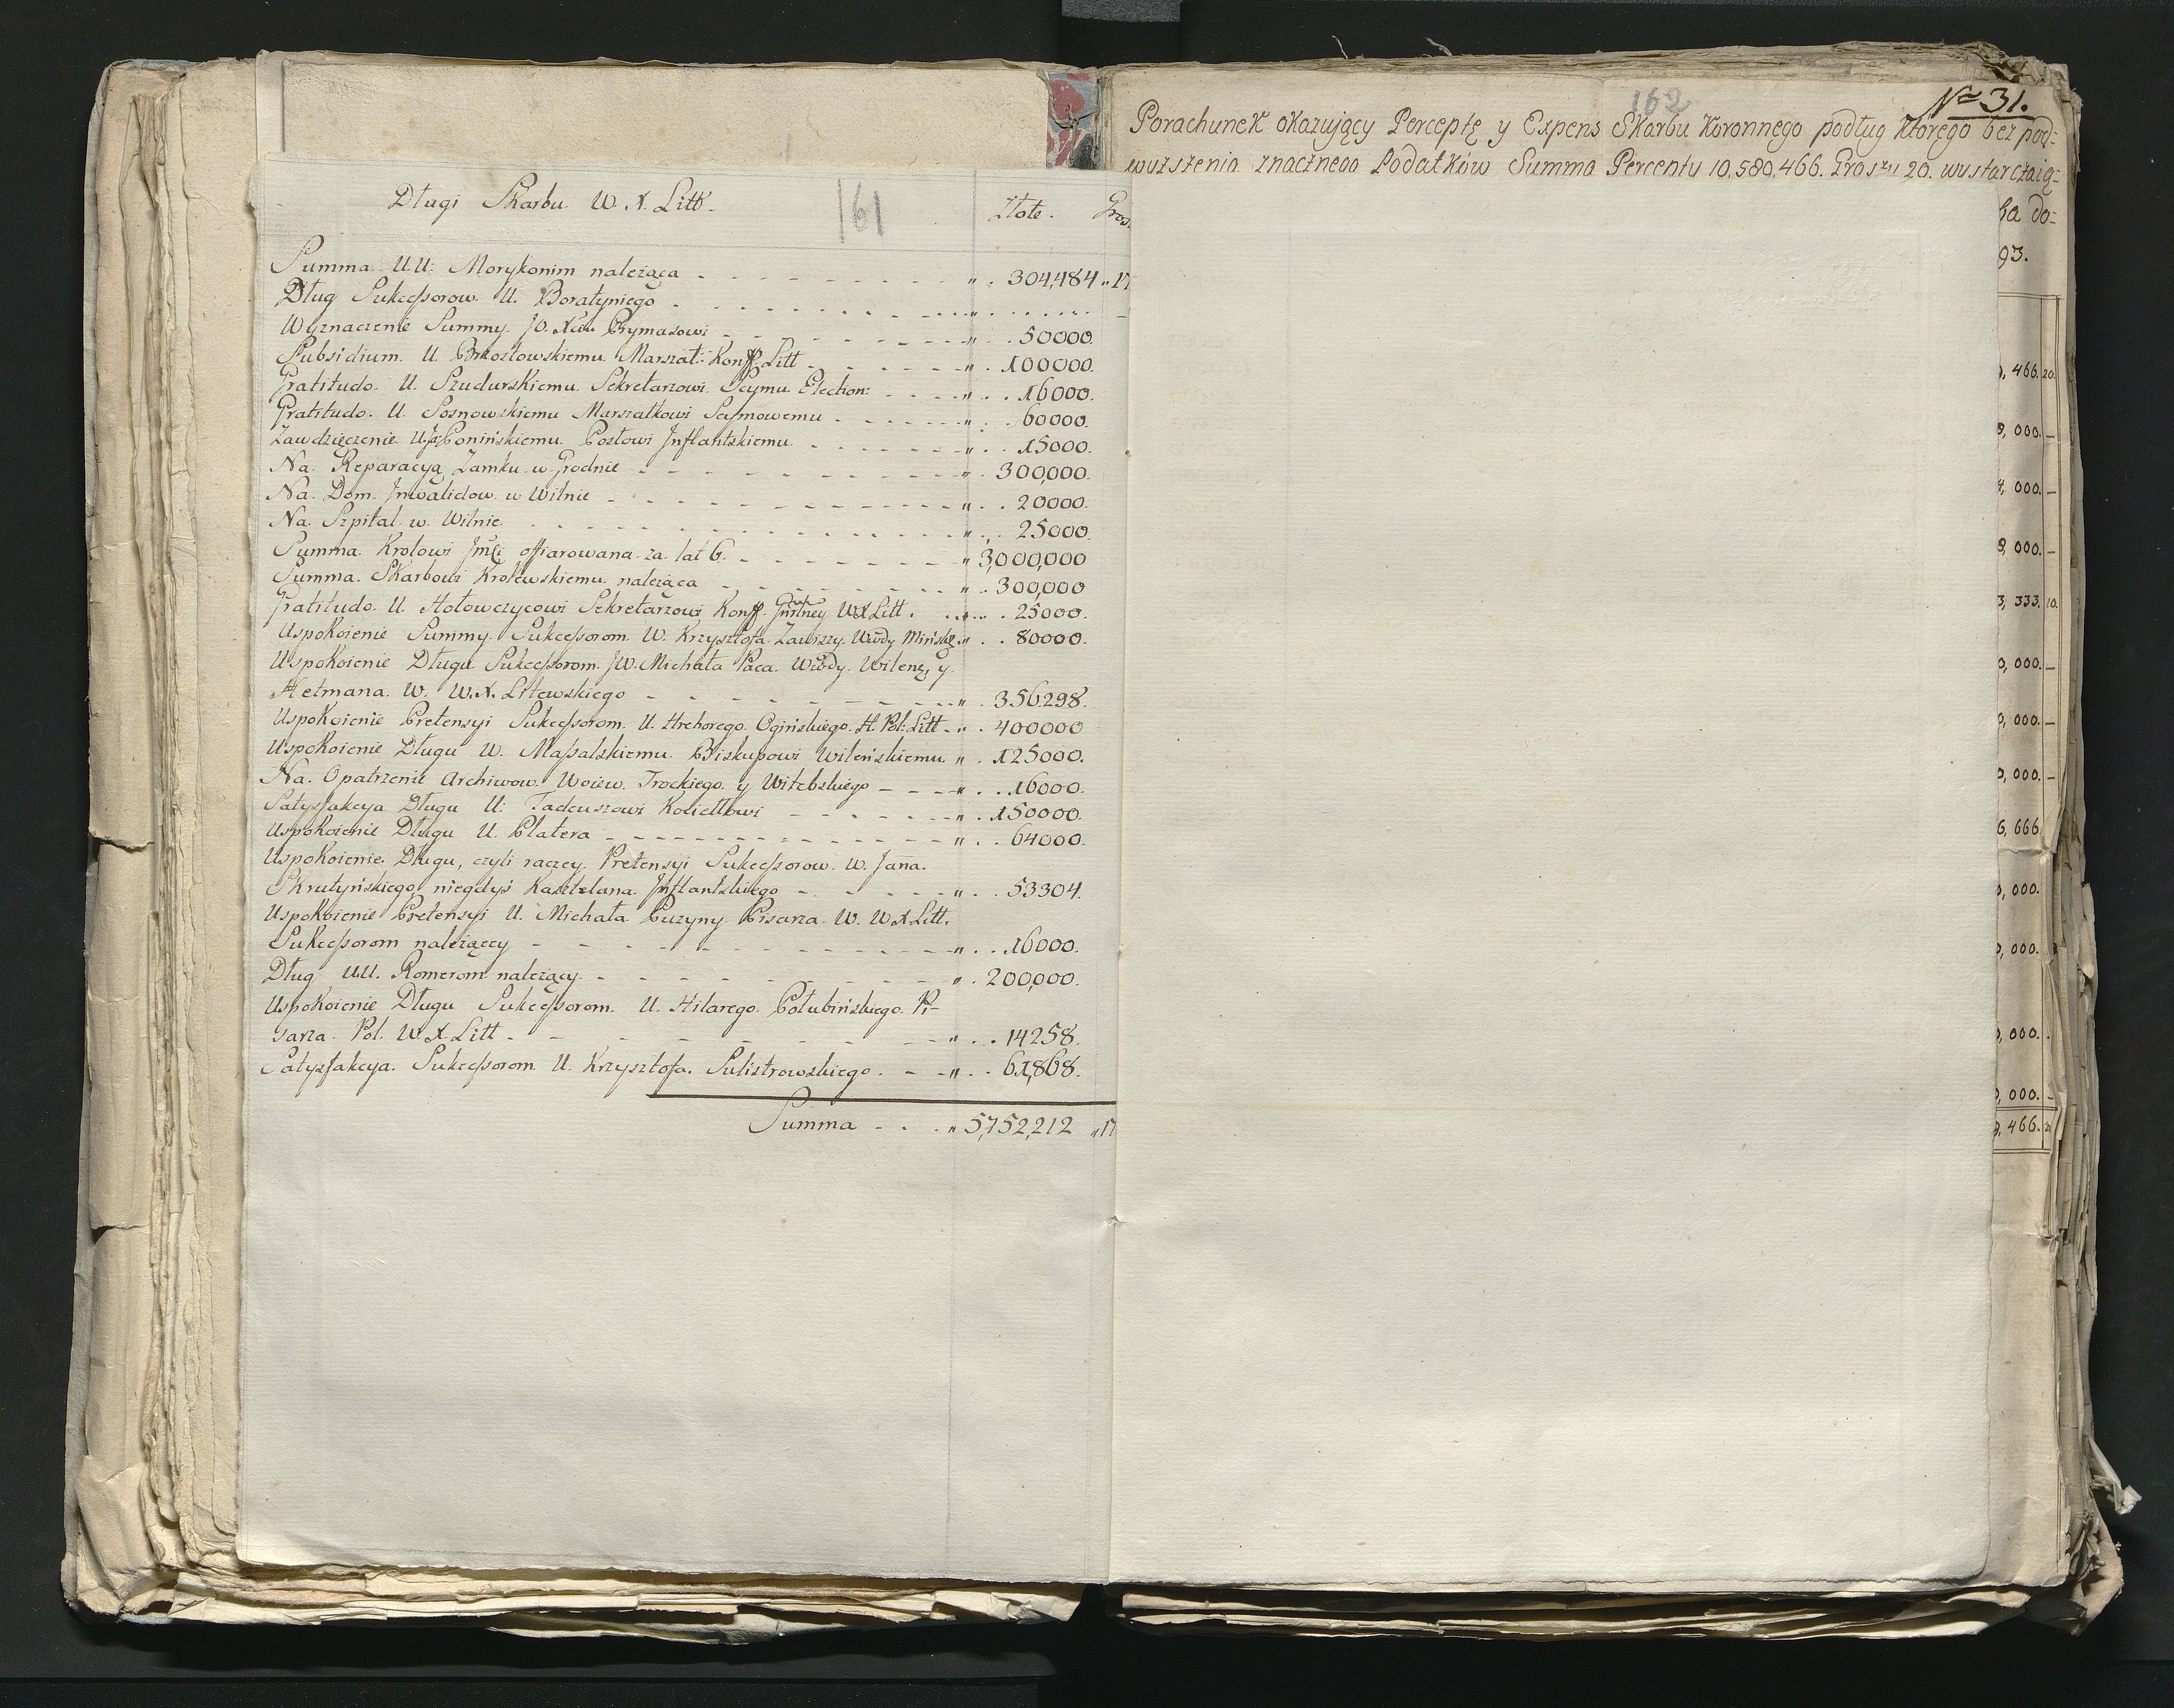 Długi Skarbu W. X. Litt.
161
Złote. Gros.
Summa U.U: Morykonim należąca - - - „ . 304,484 „ 17
Dług Sukcessorow U. Boratyniego - - -
Wyznaczenie Summy JO. Xciu Prymasowi - - - „ . 50000.
Subsidium U Brzostowskiemu Marszał: Konff Litt - - - „ . 100000.
Gratitudo U. Szudurskiemu Sekretarzowi Seymu Election: - - - „ . . 16000.
Gratitudo U Sosnowskiemu Marszałkowi Seymowemu - - - „ . 60000.
Zawdzięczenie U Ponińskiemu Posłowi Inflantskiemu - - - „ . . 15000.
Na Reparacyą Zamku w Grodnie - - - „ . 300,000.
Na Dom Inwalidow w Wilnie - - - „ . . 20000.
Na Szpital w Wilnie - - - „ . . 25000.
Summa Krolowi Jmci offiarowana za lat 6. - - - „ 3,000,000
Summa Skarbowi Krolewskiemu należąca - - - „ . 300,000
Gratitudo U Hołowczycowi Sekretarzowi Konff. Gnrlney WX Litt. . . . 25000.
Uspokoienie Summy Sukcessorom W. Krzysztofa Zawiszy Wwdy Mińskg. „ . . 80000.
Uspokoienie Długu Sukcessorom JW. Michała Paca Wwdy Wileng, y
Hetmana W. W.X. Litewskiego - - - „ . 356298.
Uspokoienie Pretensyi Sukcessorom U. Hrehorego Ogińskiego H. Pol: Litt - „ . 400000
Uspokoienie Długu W. Massalskiemu Biskupowi Wileńskiemu „ . 125000.
Na Opatrzenie Archiwow Woiew. Trockiego y Witebskiego - - - „ . . 16000.
Satysfakcya Długu U: Tadeuszowi Kociełłowi - - - „ . 150000.
Uspokoienie Długu U. Platera - - - „ . . 64000.
Uspokoienie Długu, czyli raczey Pretensyi Sukcessorow W. Jana
Skrutyńskiego niegdyś Kasztelana Inflantskiego - - - „ . . 53304.
Uspokoienie Pretensyi U. Michała Puzyny Pisarza W. WX Litt.
Sukcessorom należącey - - - „ . . 16000.
Dług UU. Romerom należący - - - „ . 200,000.
Uspokoienie Długu Sukcessorom U. Hilarego Połubińskiego Pi-
sarza Pol. W X Litt - - - „ . . 14258.
Satysfakcya Sukcessorom U. Krzysztofa Sulistrowskiego - - „ . . 61,868.
Summa - - . „ 5,752,212 „ 17
162
No 31.
Porachunek okazujący Perceptę y Expens Skarbu Koronnego podług ktorego bez pod=
wyższenia znacznego Podatków Summa Percepty 10,580,466. Groszy 20. wystarczaią=
ka do=
93.
, 466. 20.
, 000. _
, 000. _
, 000. _
3, 333. 10.
0, 000. _
0, 000. _
0, 000. _
6, 666.
0, 000.
0, 000.
, 000. .
0, 000. _
, 466. 20